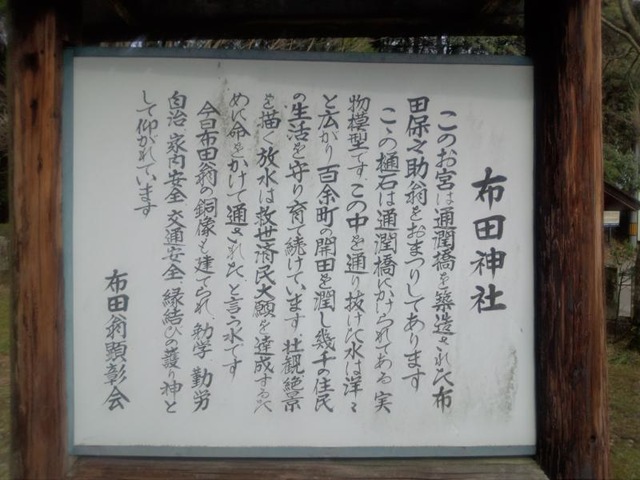 布田神社
このお宮は通潤橋を築造された布
田保之助翁をおまつりしてあります
こゝの樋石は通潤橋にかけられてある実
物模型ですこの中を通り抜けた水は洋々
と広がり百余町の開田を潤し幾千の住民
の生活を守り育て続けています壮観絶景
を描く放水は救世済民大願を達成するた
めに命をかけて通された、と言う水です
今日布田翁の銅像も建てられ、勉学、勤労
自治、家内安全、交通安全、縁結びの護り神と
して仰がれています
布田翁顕彰会